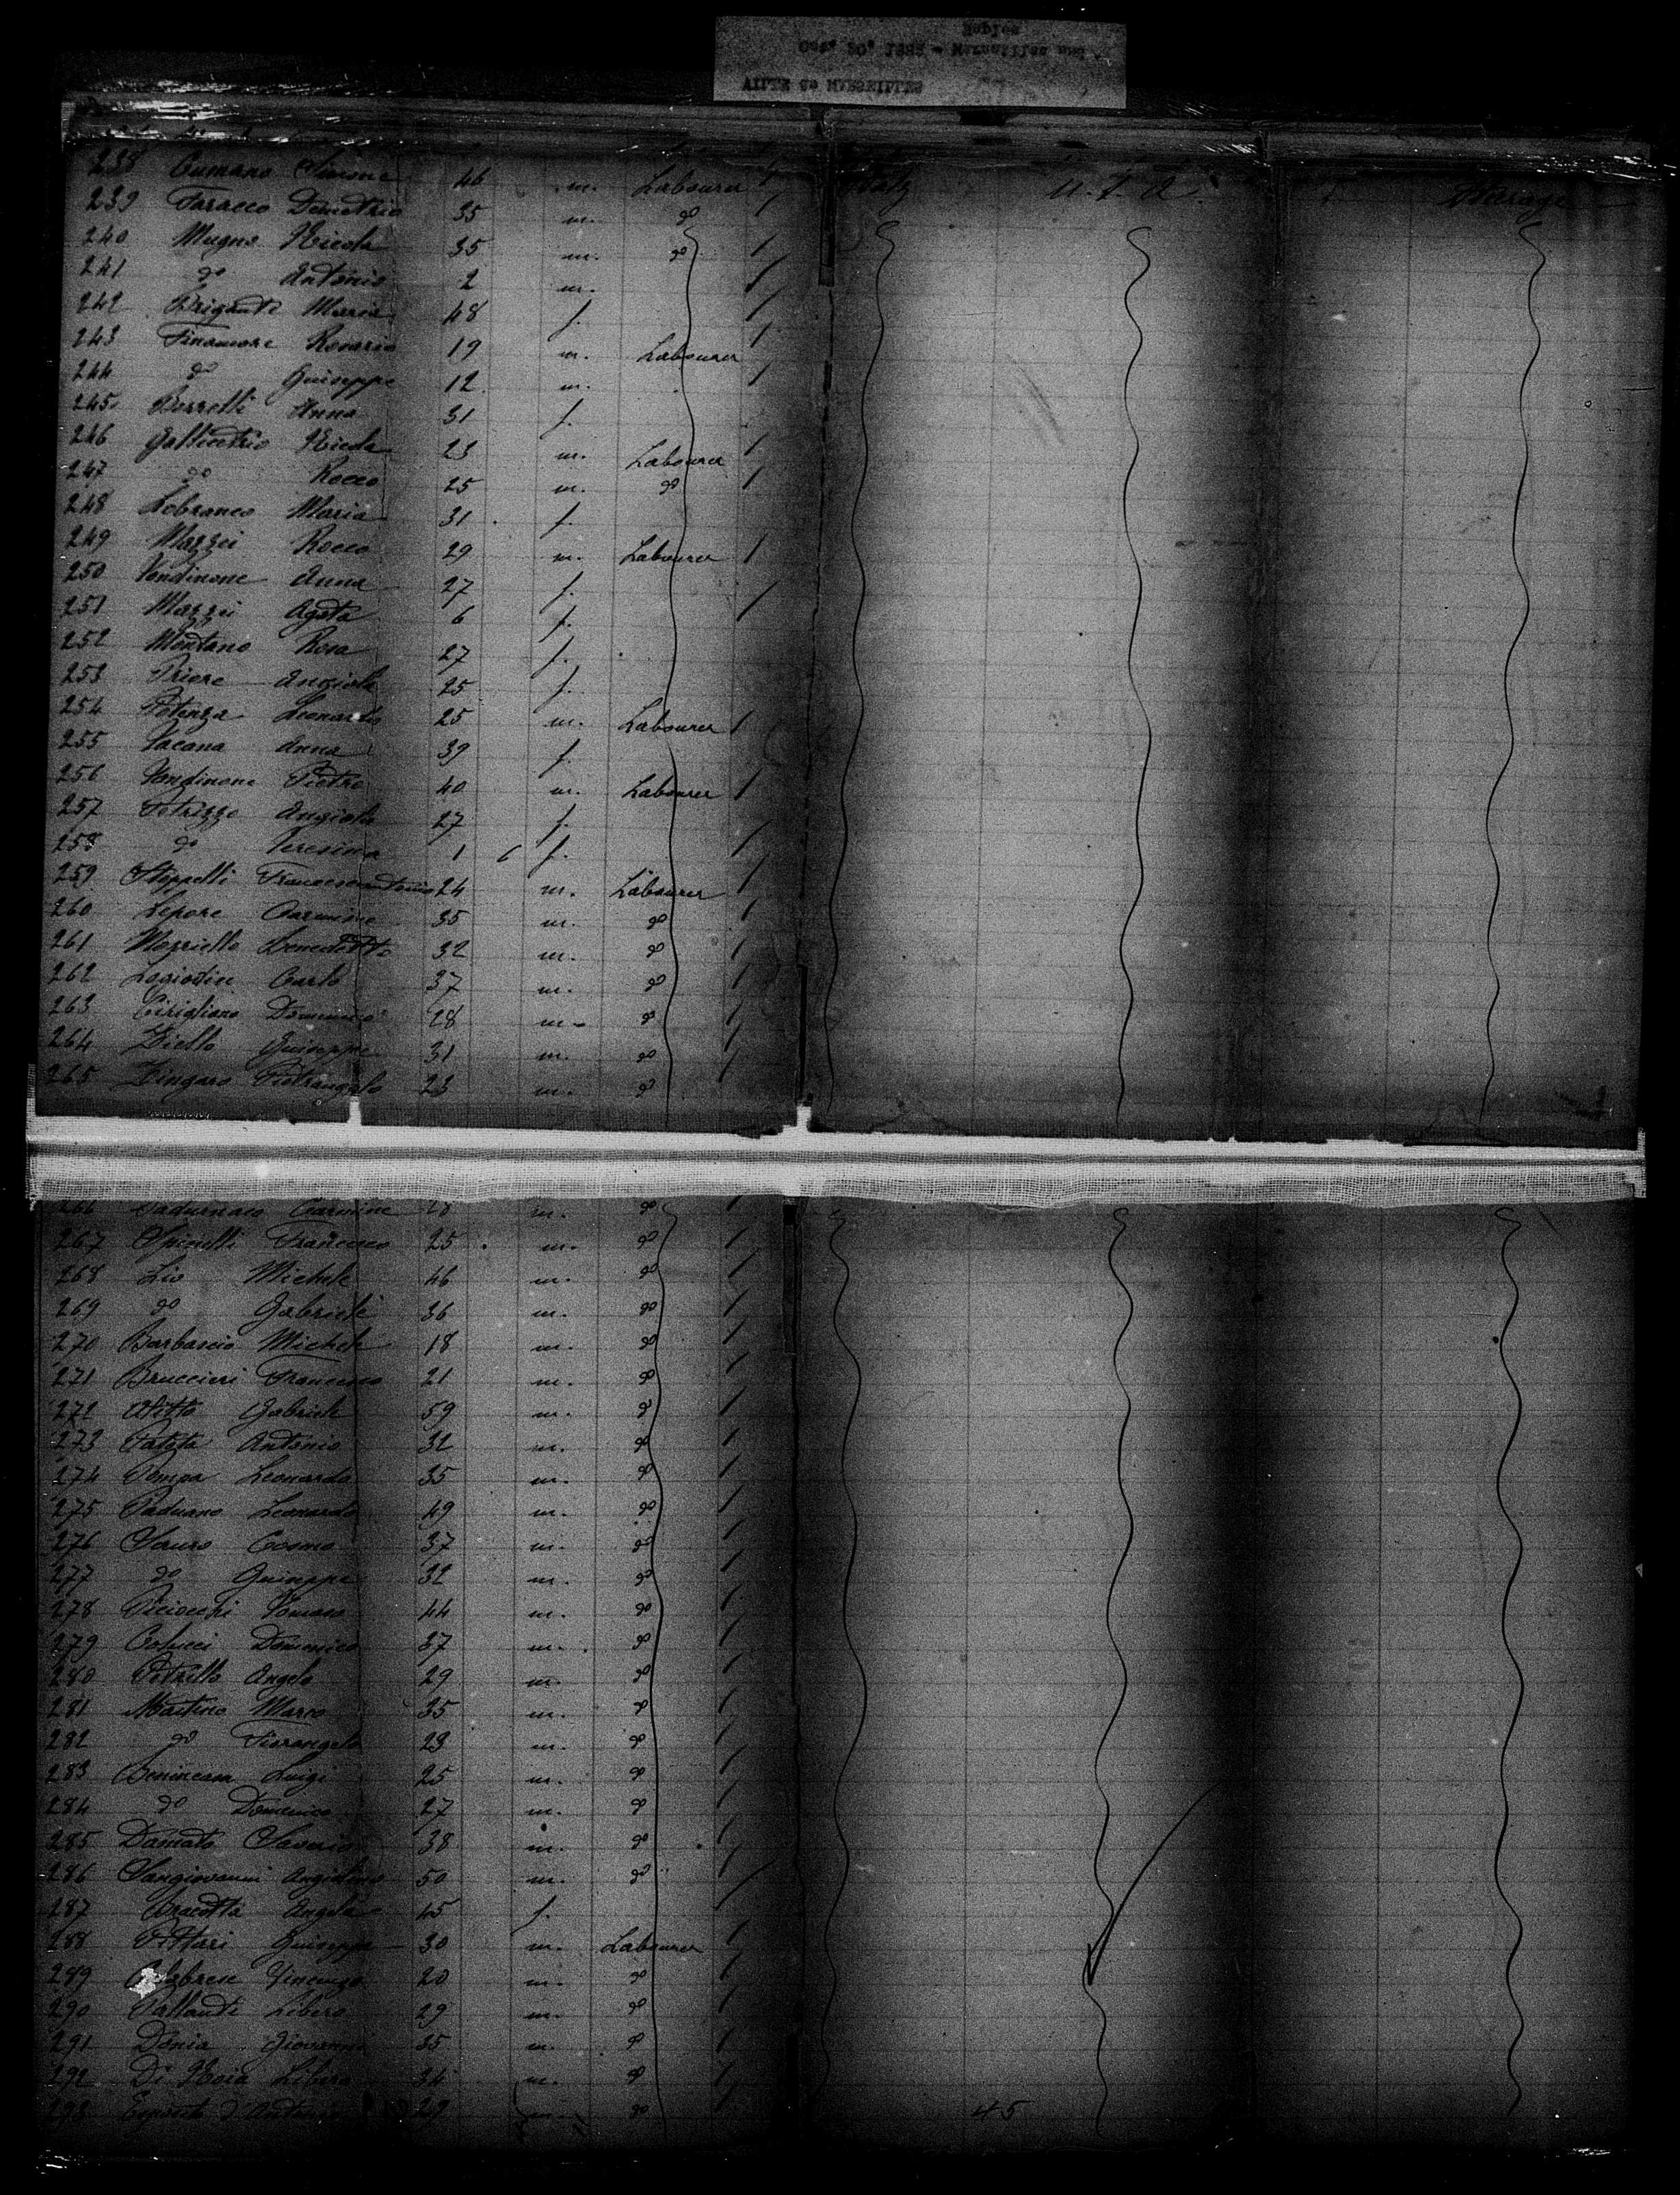 VILLE de MARSEILLES
Oct. 30, 1882 - Marseilles and
Naples
238 Cumano Simone 46 m. Labourer Italy U.S.A. Steerage
239 Taracco Demetrio 35 m. do
240 Mugno Nicola 35 m. do
241 do Antonio 2 m.
242 Briganti Maria 48 f.
243 Finamore Rosario 19 m. Labourer
244 do Guiseppe 12 m.
245 Borrelli Anna 31 f.
246 Gallicchio Nicola 23 m. Labourer
247 do Rocco 25 m. do
248 Lobranco Maria 31 f.
249 Mazzei Rocco 29 m. Labourer
250 Vondinone Anna 27 f.
251 Mazzei Agata 6 f.
252 Montano Rosa 27 f.
253 Priore Angiola 25 f.
254 Potenza Leonardo 25 m. Labourer
255 Vacana Anna 39 f.
256 Vondinone Pietro 40 m. Labourer
257 Petrizzo Angiola 27 f.
258 do Teresina 1 6 f.
259 Stoppelli Francescantonio 24 m. Labourer
260 Lepore Carmine 35 m. do
261 Morriello Benedetto 32 m. do
262 Logiodice Carlo 37 m. do
263 Cirigliano Domenico 28 m. do
264 Ziello Guiseppe 31 m. do
265 Zingaro Pietrangelo 23 m. do
266 Carmine 28 m. do
267 Spinelli Francesco 25 m. do
268 Lio Michele 46 m. do
269 do Gabriele 36 m. do
270 Barbascio Michele 18 m. do
271 Bruccieri Francesco 21 m. do
272 Gabriele 59 m. do
273 Patota Antonio 32 m. do
274 Pompa Leonardo 35 m. do
275 Paduano Leonardo 49 m. do
276 Sauro Cosmo 37 m. do
277 do Guiseppe 32 m. do
278 Piciocchi Tomaso 44 m. do
279 Colucci Domenico 37 m. do
280 Petrillo Angelo 29 m. do
281 Martino Marco 35 m. do
282 do Fiorangelo 23 m. do
283 Benincasa Luigi 25 m. do
284 do Domenico 27 m. do
285 Damato Saverio 38 m. do
286 Sangiovanni Angiolino 50 m. do
287 Bracotta Angela 45 f.
288 Pittari Guiseppe 30 m. Labourer
289 Calabrese Vincenzo 20 m. do
290 Pallanti Libero 29 m. do
291 Donia Giovanni 35 m. do
292 Di Noia Libero 34 m. do
293 Esposito d'Antonio 29 m. do
45